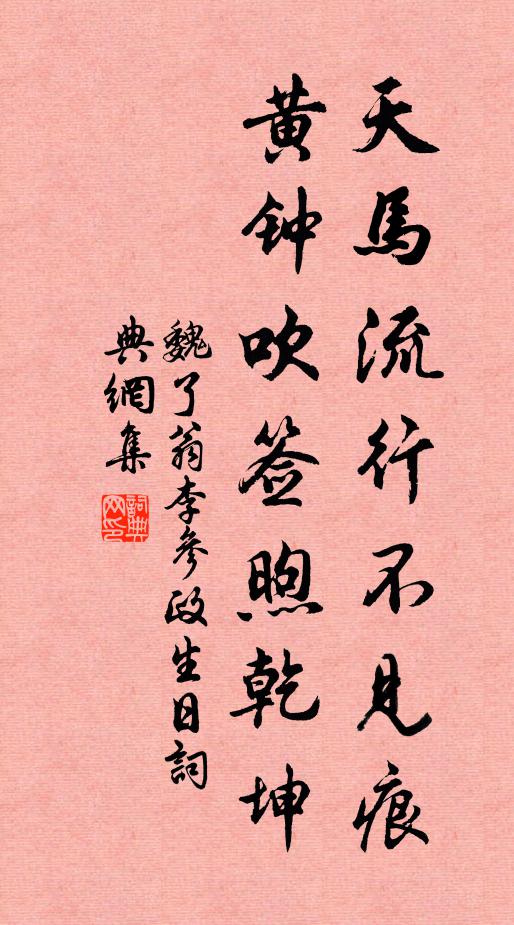 天馬流行不見痕
黄钟吹签煦乾坤
魏了翁李參政生日詞
典網集
詞典网印